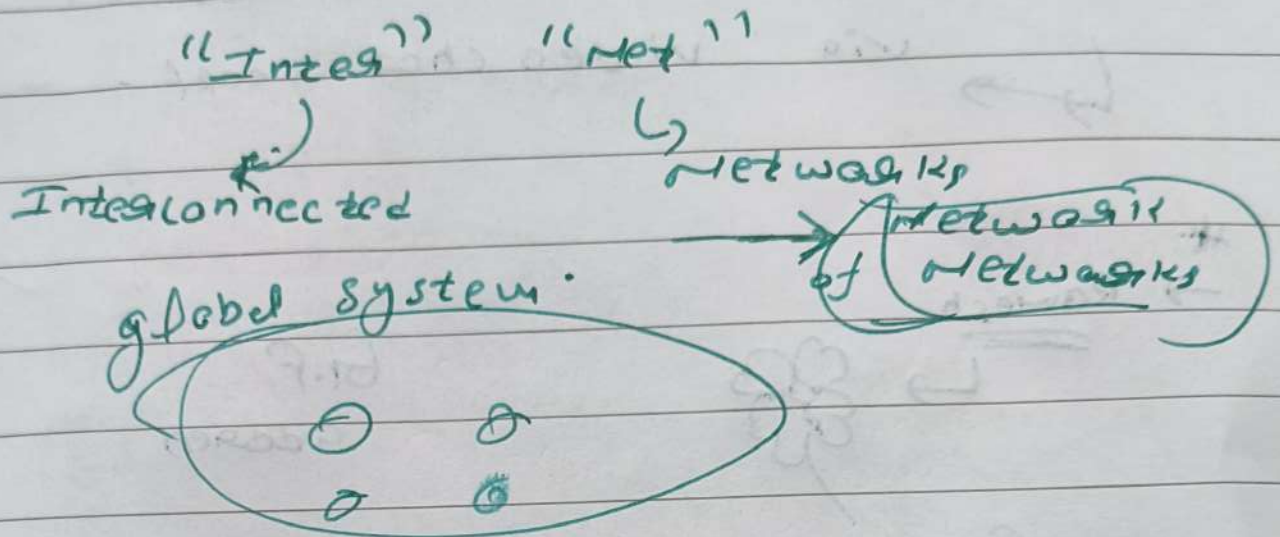 "Inter" "Net"
Interconnected
Networks
Network
of Networks
global system.